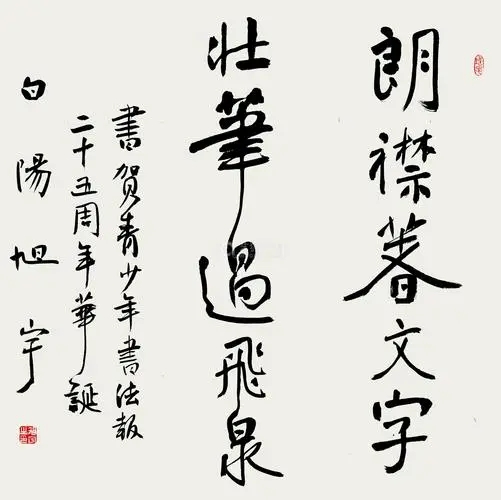 朗襟文字
壮筆過飛泉
書賀青少年書法報
二十五周年華誕
白陽旭宇